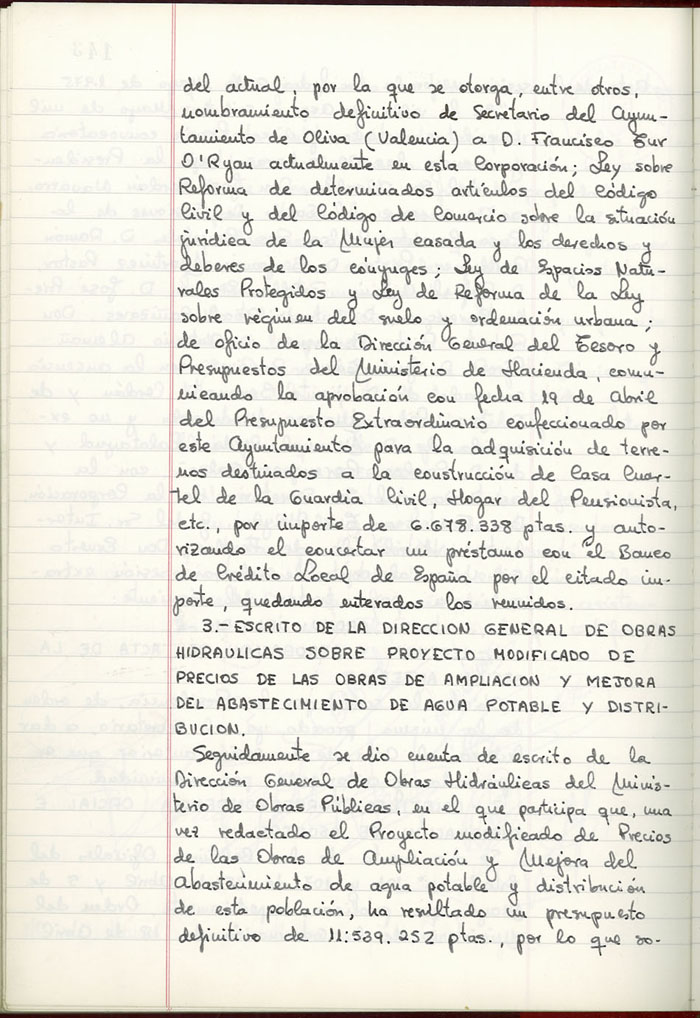 del actual, por la que se otorga, entre otros,
nombramiento definitivo de Secretario del Ayun-
tamiento de Oliva (Valencia) a D. Francisco Zur
O'Ryan actualmente en esta Corporación; Ley sobre
Reforma de determinados artículos del Código
Civil y del Código de Comercio sobre la situación
jurídica de la Mujer casada y los derechos y
deberes de los cónyuges; Ley de Espacios Natu-
rales Protegidos y Ley de Reforma de la Ley
sobre régimen del suelo y ordenación urbana;
de oficio de la Dirección General del Tesoro y
Presupuestos del Ministerio de Hacienda, comu-
nicando la aprobación con fecha 19 de Abril
del Presupuesto Extraordinario confeccionado por
este Ayuntamiento para la adquisición de terre-
nos destinados a la construcción de Casa Cuar-
tel de la Guardia Civil, Hogar del Pensionista,
etc., por importe de 6.678.338 ptas. y auto-
rizando el concertar un préstamo con el Banco
de Crédito Local de España por el citado im-
porte, quedando enterados los reunidos.
3.- ESCRITO DE LA DIRECCION GENERAL DE OBRAS
HIDRAULICAS SOBRE PROYECTO MODIFICADO DE
PRECIOS DE LAS OBRAS DE AMPLIACION Y MEJORA
DEL ABASTECIMIENTO DE AGUA POTABLE Y DISTRI-
BUCION.
Seguidamente se dio cuenta de escrito de la
Dirección General de Obras Hidráulicas del Minis-
terio de Obras Públicas, en el que participa que, una
vez redactado el Proyecto modificado de Precios
de las Obras de Ampliación y Mejora del
Abastecimiento de agua potable y distribución
de esta población, ha resultado un presupuesto
definitivo de 11:539.252 ptas., por lo que so-